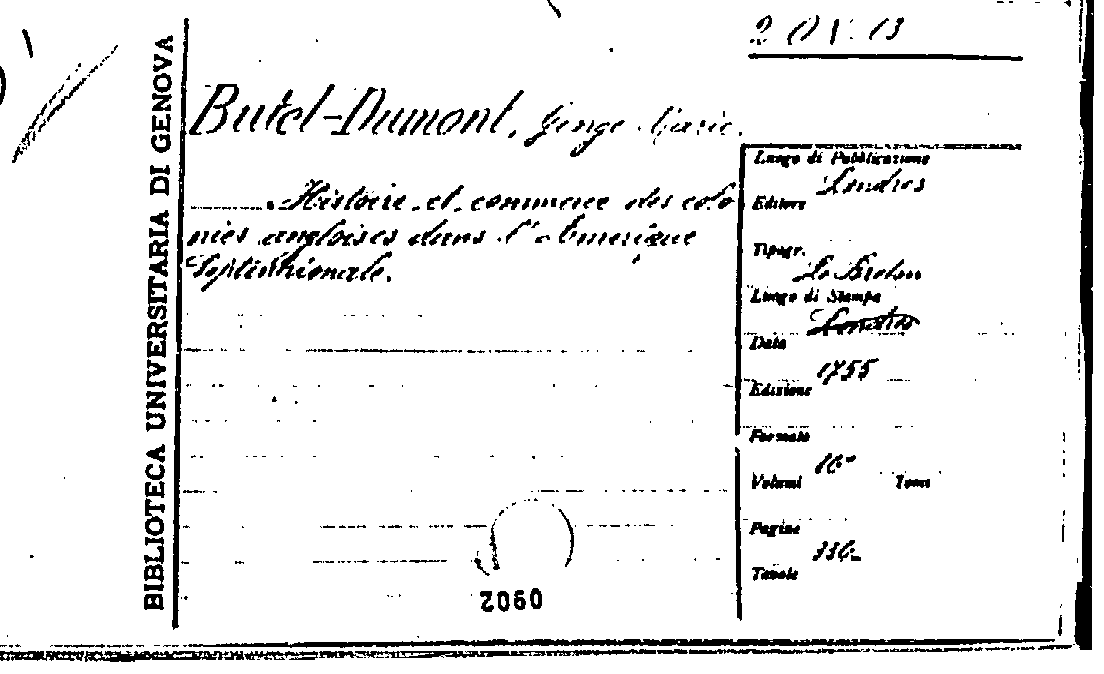 BIBLIOTECA UNIVERSITARIA DI GENOVA
2 O V. 13
Butel-Dumont, Giorgio Maria.
Histoire et commerce des colo
nies angloises dans l'Amerique
Septentrionale.
Luogo di Pubblicazione
Londres
Editore
Tipogr.
Le Breton
Luogo di Stampa
Londres
Data
1755
Edizione
Formato
16°
Volumi Tomi
Pagine
336
Tavole
0902